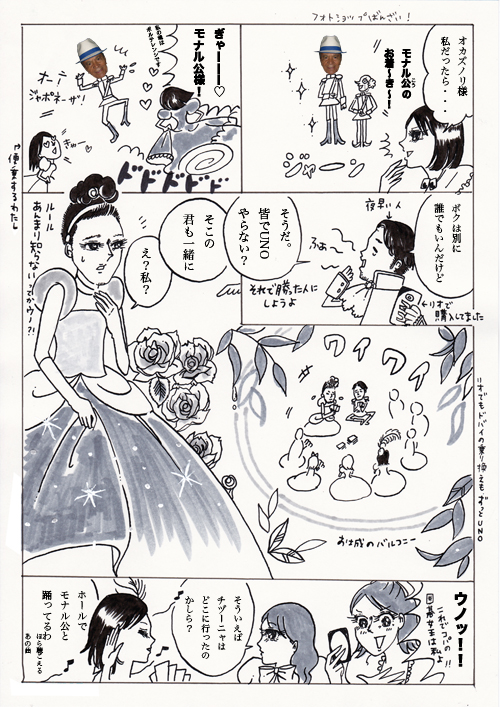 フォトショップばんざい!
オカズノリ様
私だったら・・・
モナル公の
お着〜き〜!
ジャーン
ぎゃーーー♡
モナル公様!
私の魂は
ポルナレンソンです♡
オーラ
ジャポネーザ!
きゃー♡
ドドドドド
や便乗するわたし
ボクは別に
誰でもいんだけど
夜早い人
ふぁ〜
←リオで
購入してました
そうだ。
皆でUNO
やらない?
それで勝った人に
しようよ
そこの
君も一緒に
え?私?
ルール
あんまり知らないってかウノ?!
ワイワイ
お城のバルコニー
リオでもドバイの乗り換えもずっとUNO
ウノッ!!
これでコパの
囲碁女王は私よ!!
そういえば
チヅーニャは
どこに行ったの
かしら?
ホールで
モナル公と
踊ってるわ
ほら聴こえる
あの曲